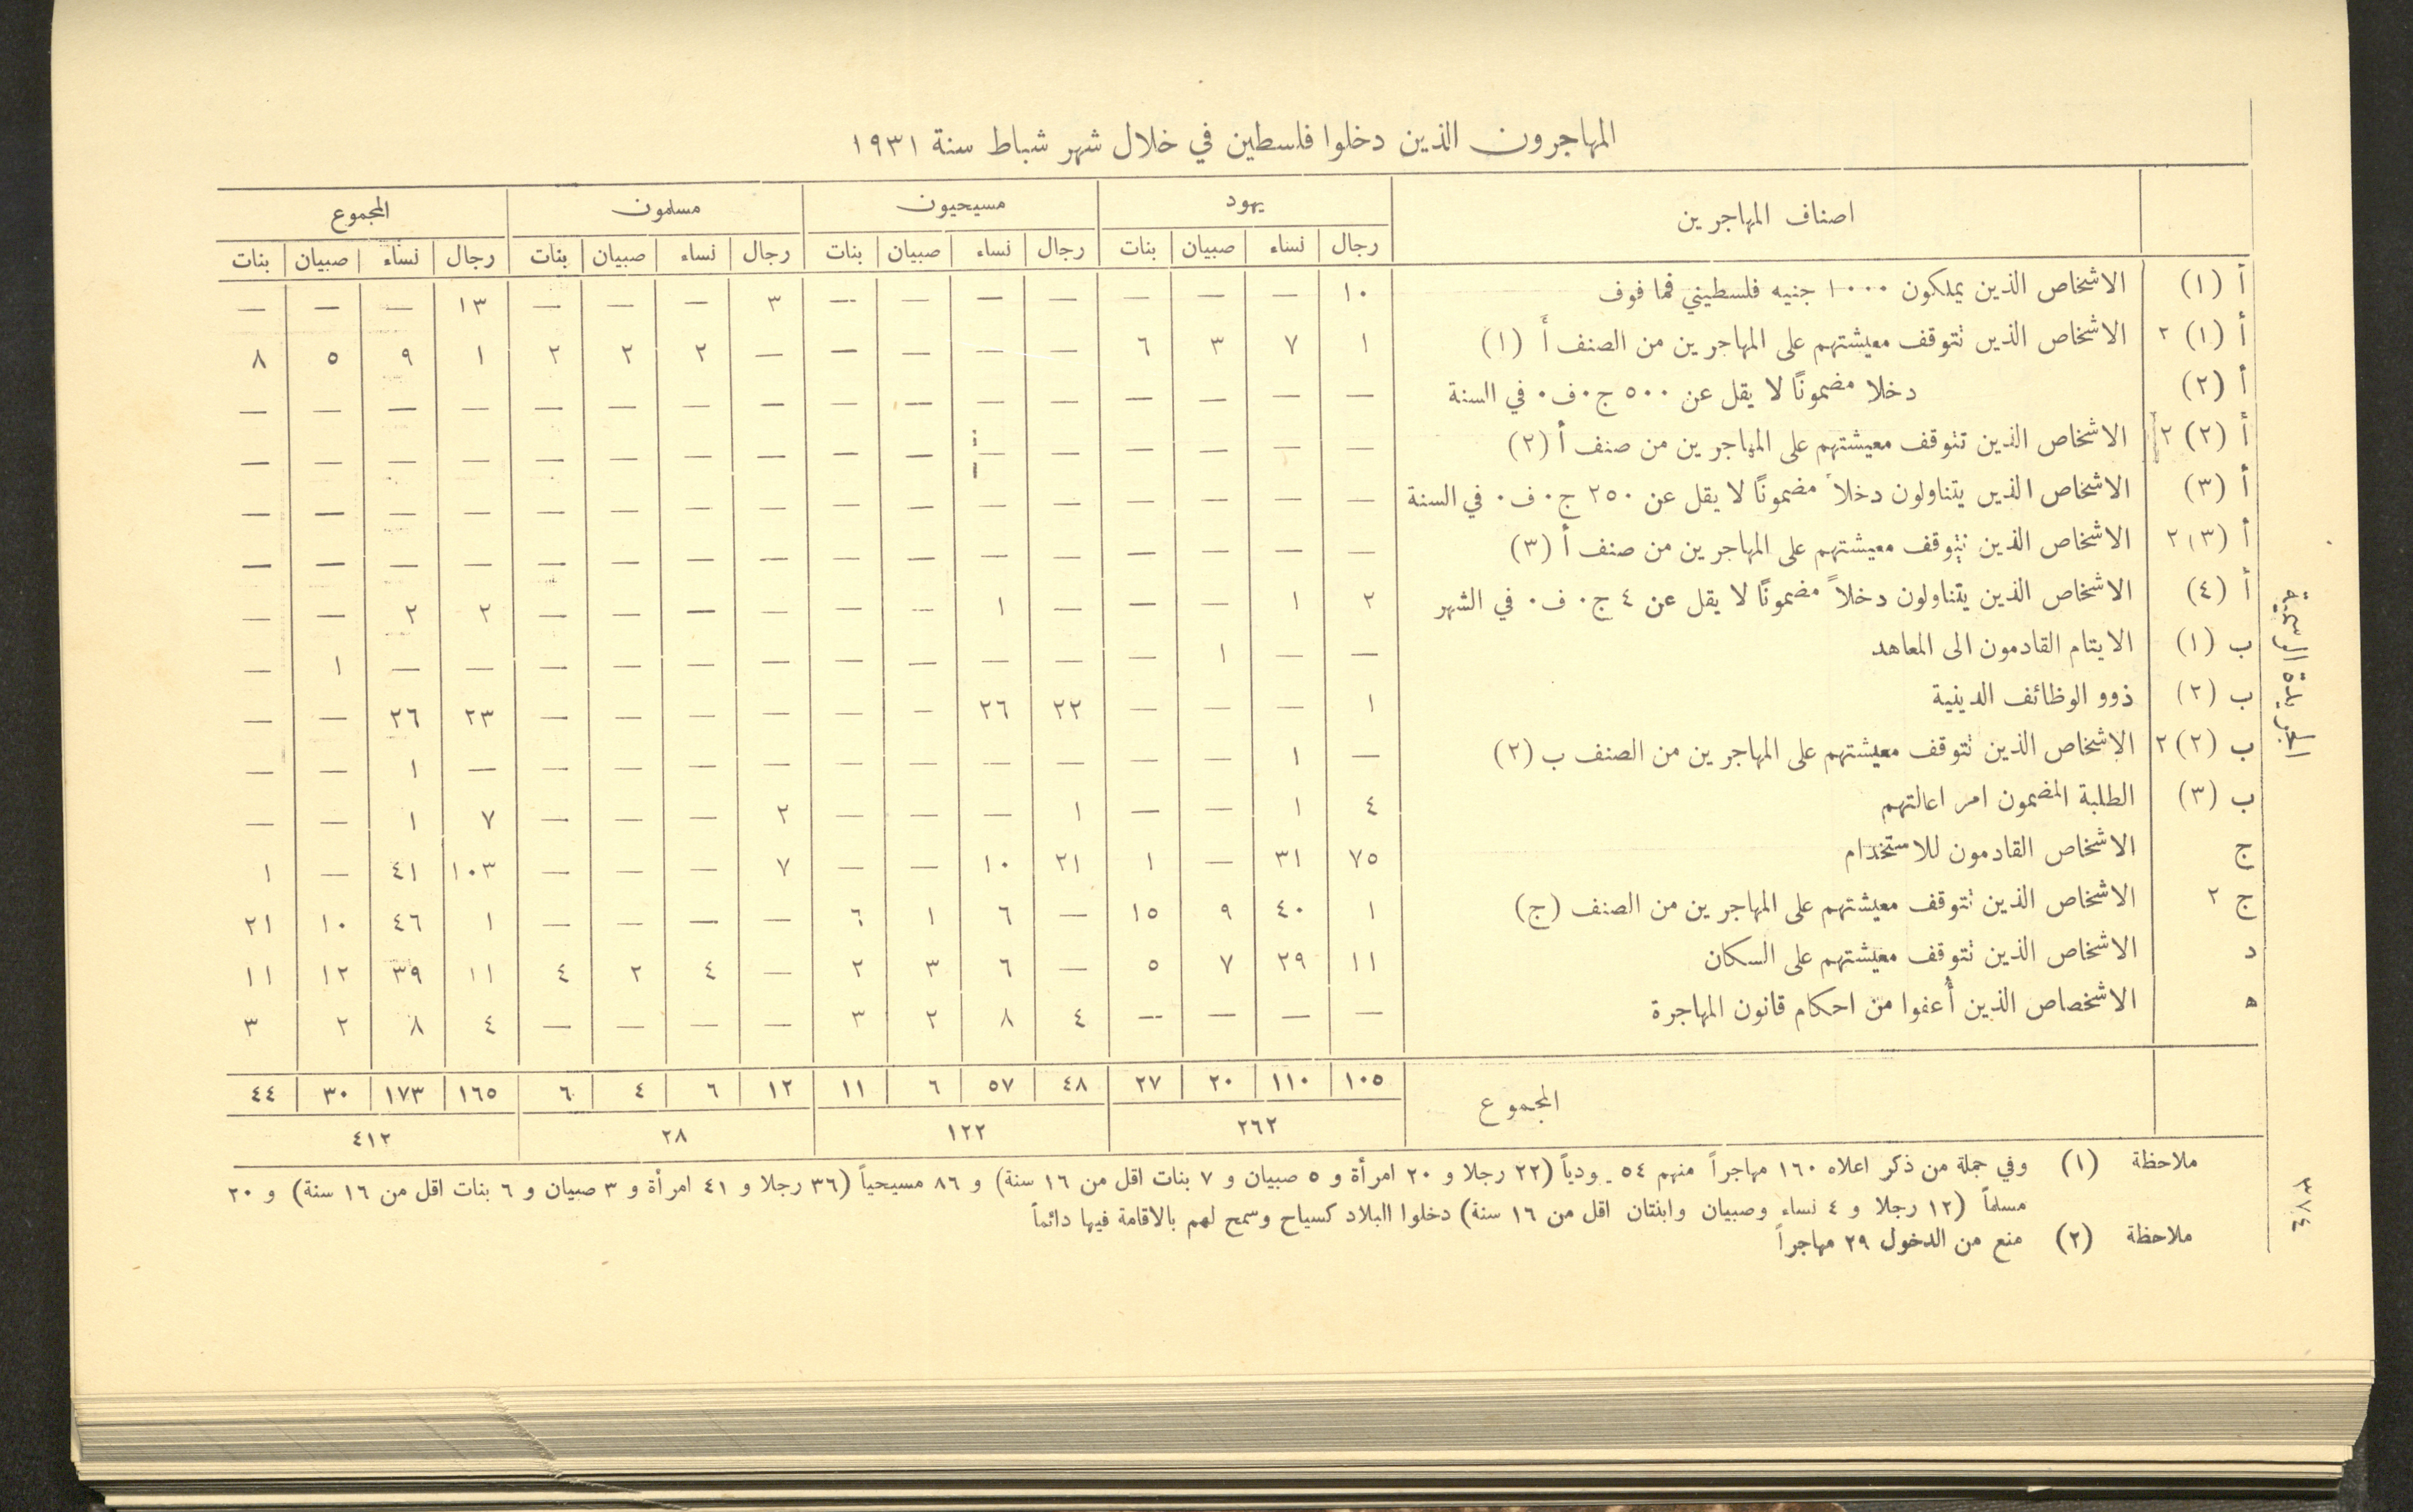 المهاجرون الذين دخلوا فلسطين في خلال شهر شباط سنة ١٩٣١
اصناف المهاجرين | يهود | مسيحيون | مسلمون | المجموع
رجال | نساء | صبيان | بنات | رجال | نساء | صبيان | بنات | رجال | نساء | صبيان | بنات | رجال | نساء | صبيان | بنات
أ (١) | الاشخاص الذين يملكون ١٠٠٠ جنيه فلسطيني فما فوف | ١٠ | — | — | — | — | — | — | — | ٣ | — | — | — | ١٣ | — | — | —
أ (١) ٢ | الاشخاص الذين تتوقف معيشتهم على المهاجرين من الصنف أ (١) | ١ | ٧ | ٣ | ٦ | — | — | — | — | — | ٢ | ٢ | ٢ | ١ | ٩ | ٥ | ٨
أ (٢) | دخلا مضمونًا لا يقل عن ٥٠٠ ج٠ف٠ في السنة | — | — | — | — | — | — | — | — | — | — | — | — | — | — | — | —
أ (٢) ٢ | الاشخاص الذين تتوقف معيشتهم على المهاجرين من صنف أ (٢) | — | — | — | — | — | — | — | — | — | — | — | — | — | — | — | —
أ (٣) | الاشخاص الذين يتناولون دخلاً مضمونًا لا يقل عن ٢٥٠ ج٠ ف٠ في السنة | — | — | — | — | — | — | — | — | — | — | — | — | — | — | — | —
أ (٣) ٢ | الاشخاص الذين تتوقف معيشتهم على المهاجرين من صنف أ (٣) | — | — | — | — | — | — | — | — | — | — | — | — | — | — | — | —
أ (٤) | الاشخاص الذين يتناولون دخلاً مضمونًا لا يقل عن ٤ ج٠ ف٠ في الشهر | ٢ | ١ | — | — | — | ١ | — | — | — | — | — | — | ٢ | ٢ | — | —
ب (١) | الايتام القادمون الى المعاهد | — | — | ١ | — | — | — | — | — | — | — | — | — | — | — | ١ | —
ب (٢) | ذوو الوظائف الدينية | ١ | — | — | — | ٢٢ | ٢٦ | — | — | — | — | — | — | ٢٣ | ٢٦ | — | —
ب (٢) ٢ | الاشخاص الذين تتوقف معيشتهم على المهاجرين من الصنف ب (٢) | — | ١ | — | — | — | — | — | — | — | — | — | — | — | ١ | — | —
ب (٣) | الطلبة المضمون امر اعالتهم | ٤ | ١ | — | — | ١ | — | — | — | ٢ | — | — | — | ٧ | ١ | — | —
ج | الاشخاص القادمون للاستخدام | ٧٥ | ٣١ | — | ١ | ٢١ | ١٠ | — | — | ٧ | — | — | — | ١٠٣ | ٤١ | — | ١
ج ٢ | الاشخاص الذين تتوقف معيشتهم على المهاجرين من الصنف (ج) | ١ | ٤٠ | ٩ | ١٥ | — | ٦ | ١ | ٦ | — | — | — | — | ١ | ٤٦ | ١٠ | ٢١
د | الاشخاص الذين تتوقف معيشتهم على السكان | ١١ | ٢٩ | ٧ | ٥ | — | ٦ | ٣ | ٢ | — | ٤ | ٢ | ٤ | ١١ | ٣٩ | ١٢ | ١١
ه | الاشخصاص الذين أعفوا من احكام قانون المهاجرة | — | — | — | — | ٤ | ٨ | ٢ | ٣ | — | — | — | — | ٤ | ٨ | ٢ | ٣
المجموع | ١٠٥ | ١١٠ | ٢٠ | ٢٧ | ٤٨ | ٥٧ | ٦ | ١١ | ١٢ | ٦ | ٤ | ٦ | ١٦٥ | ١٧٣ | ٣٠ | ٤٤
٢٦٢ | ١٢٢ | ٢٨ | ٤١٢
ملاحظة (١) وفي جملة من ذكر اعلاه ١٦٠ مهاجراً منهم ٥٤ ـودياً (٢٢ رجلا و ٢٠ امرأة و ٥ صبيان و ٧ بنات اقل من ١٦ سنة) و ٨٦ مسيحياً (٣٦ رجلا و ٤١ امرأة و ٣ صبيان و ٦ بنات اقل من ١٦ سنة) و ٢٠
مسلماً (١٢ رجلا و ٤ نساء وصبيان وابنتان اقل من ١٦ سنة) دخلوا البلاد كسياح وسمح لهم بالاقامة فيها دائماً
ملاحظة (٢) منع من الدخول ٢٩ مهاجراً
الجريدة الرسمية
٣٧٤